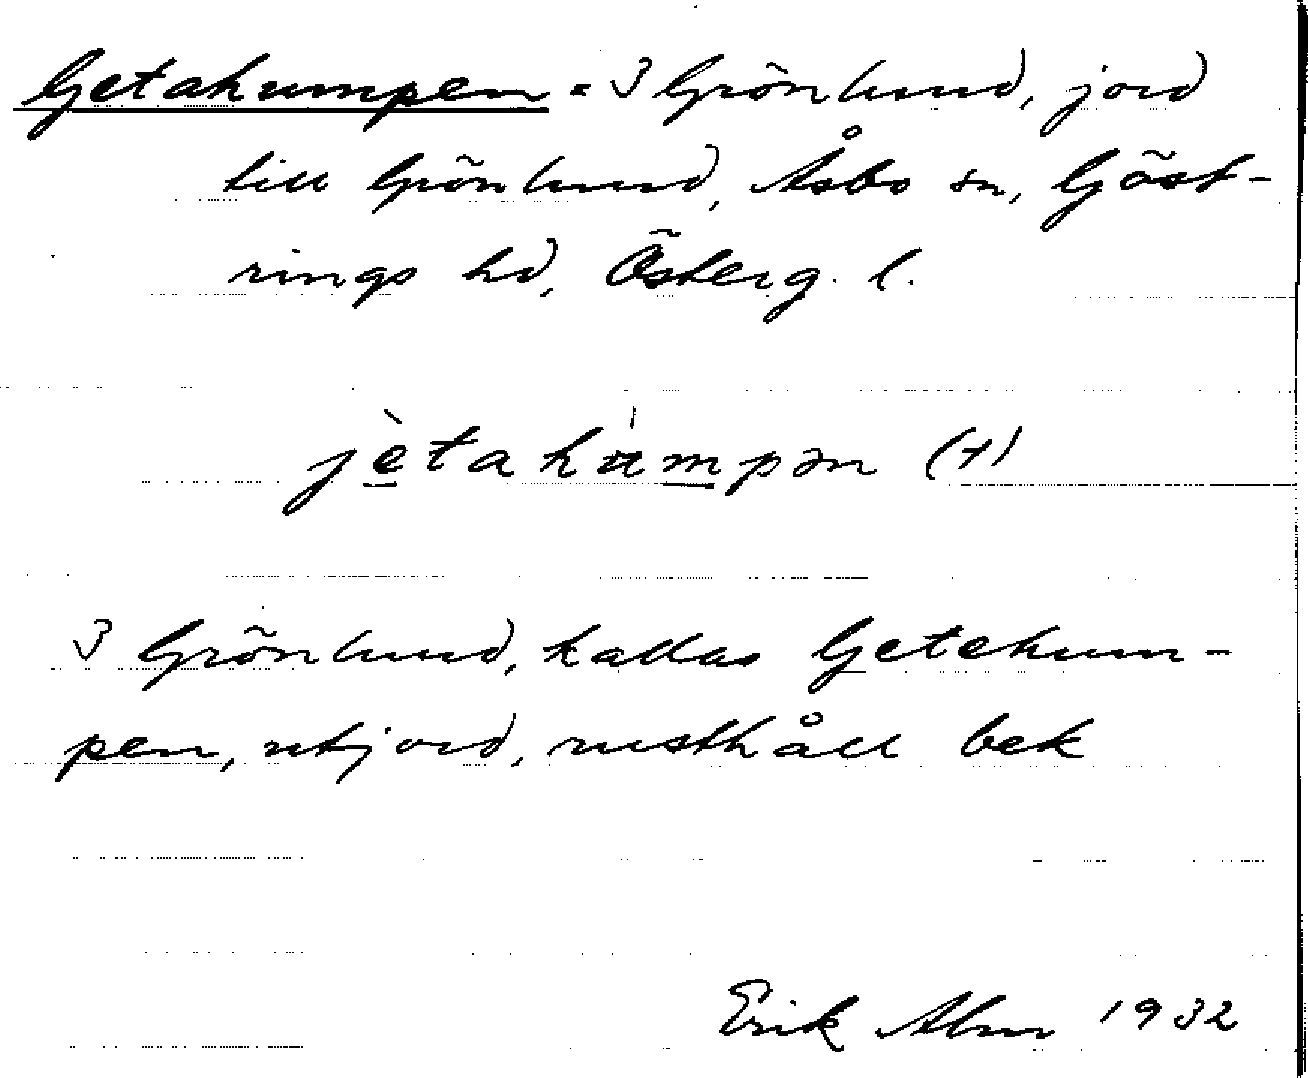 Getahumpen = 3 Grönlund, jord
till Grönlund, Åsbo sn, Göst-
rings hd, Österg. l.
jètahu̍mpən (†)
3 Grönlund, kallas Getehum-
pen, utjord, rusthåll bek
Erik Alm 1932